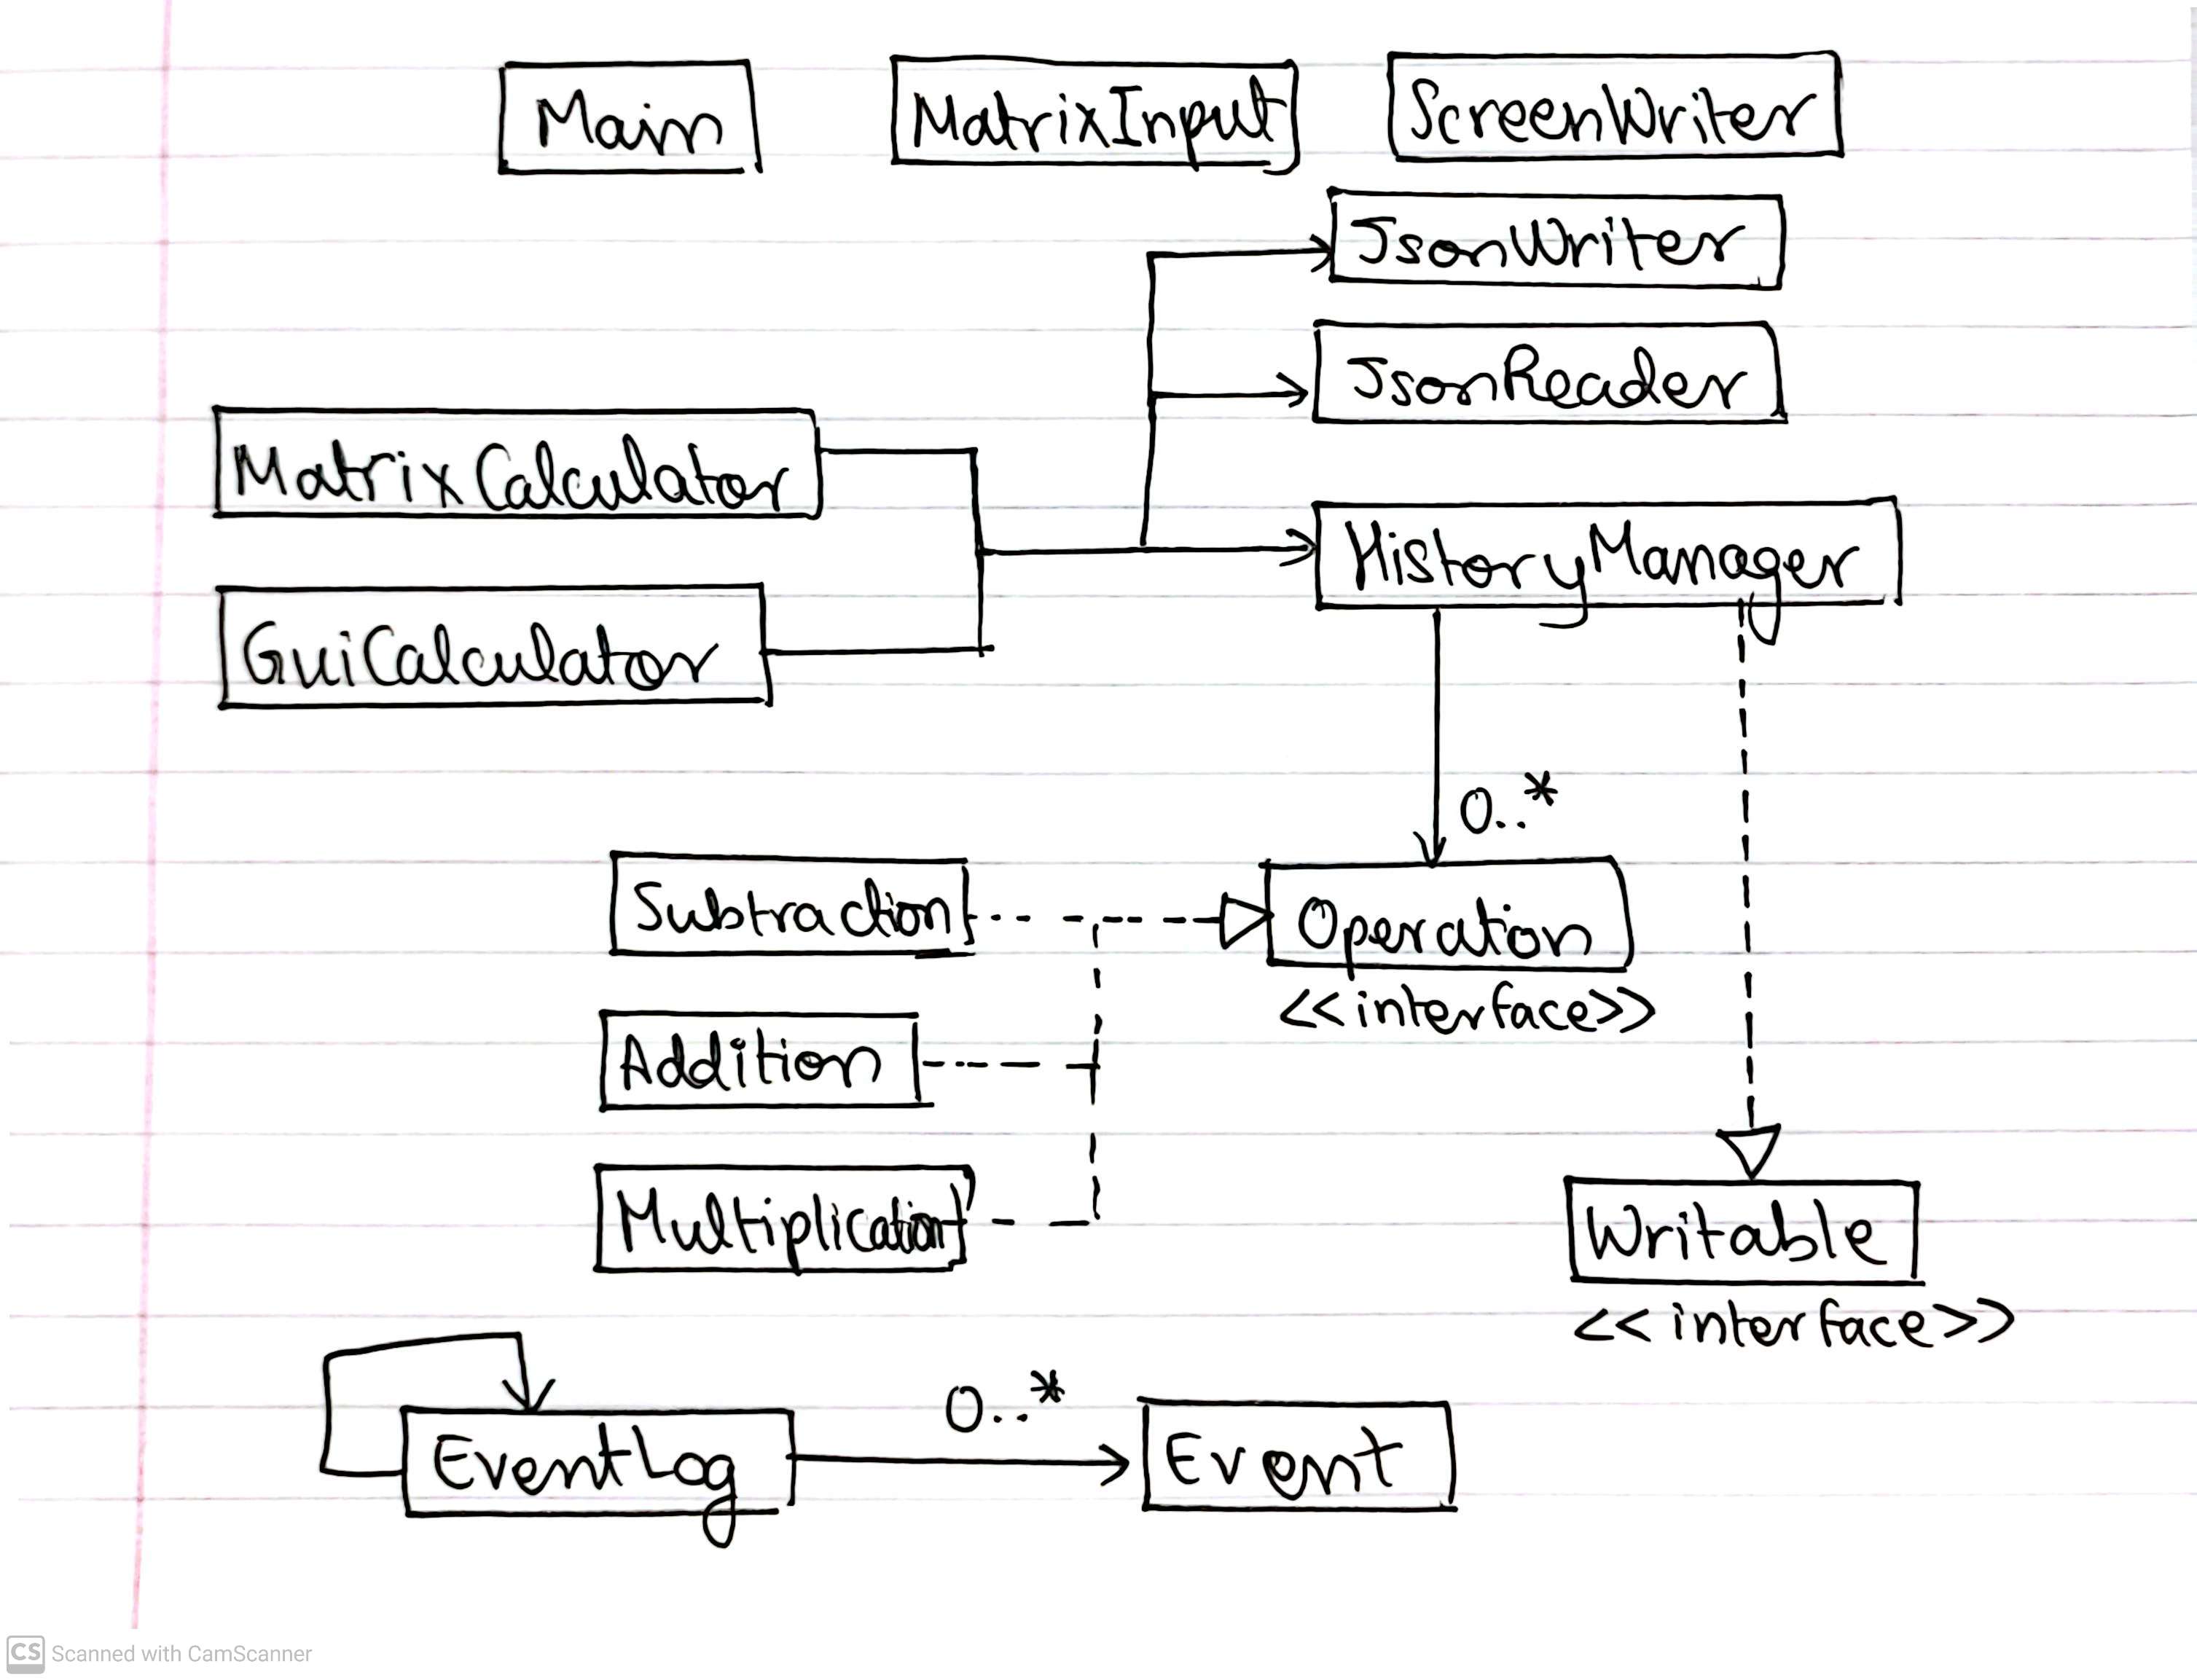 Main
MatrixInput
ScreenWriter
JsonWriter
JsonReader
MatrixCalculator
HistoryManager
GuiCalculator
0..*
Subtraction
Operation
<<interface>>
Addition
Multiplication
Writable
<<interface>>
0..*
EventLog
Event
CS Scanned with CamScanner